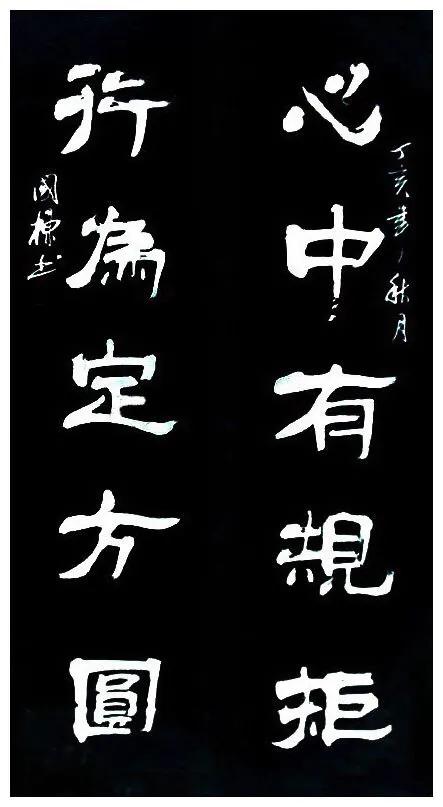 丁亥書秋月
心中有規矩
行為定方圓
國棟書